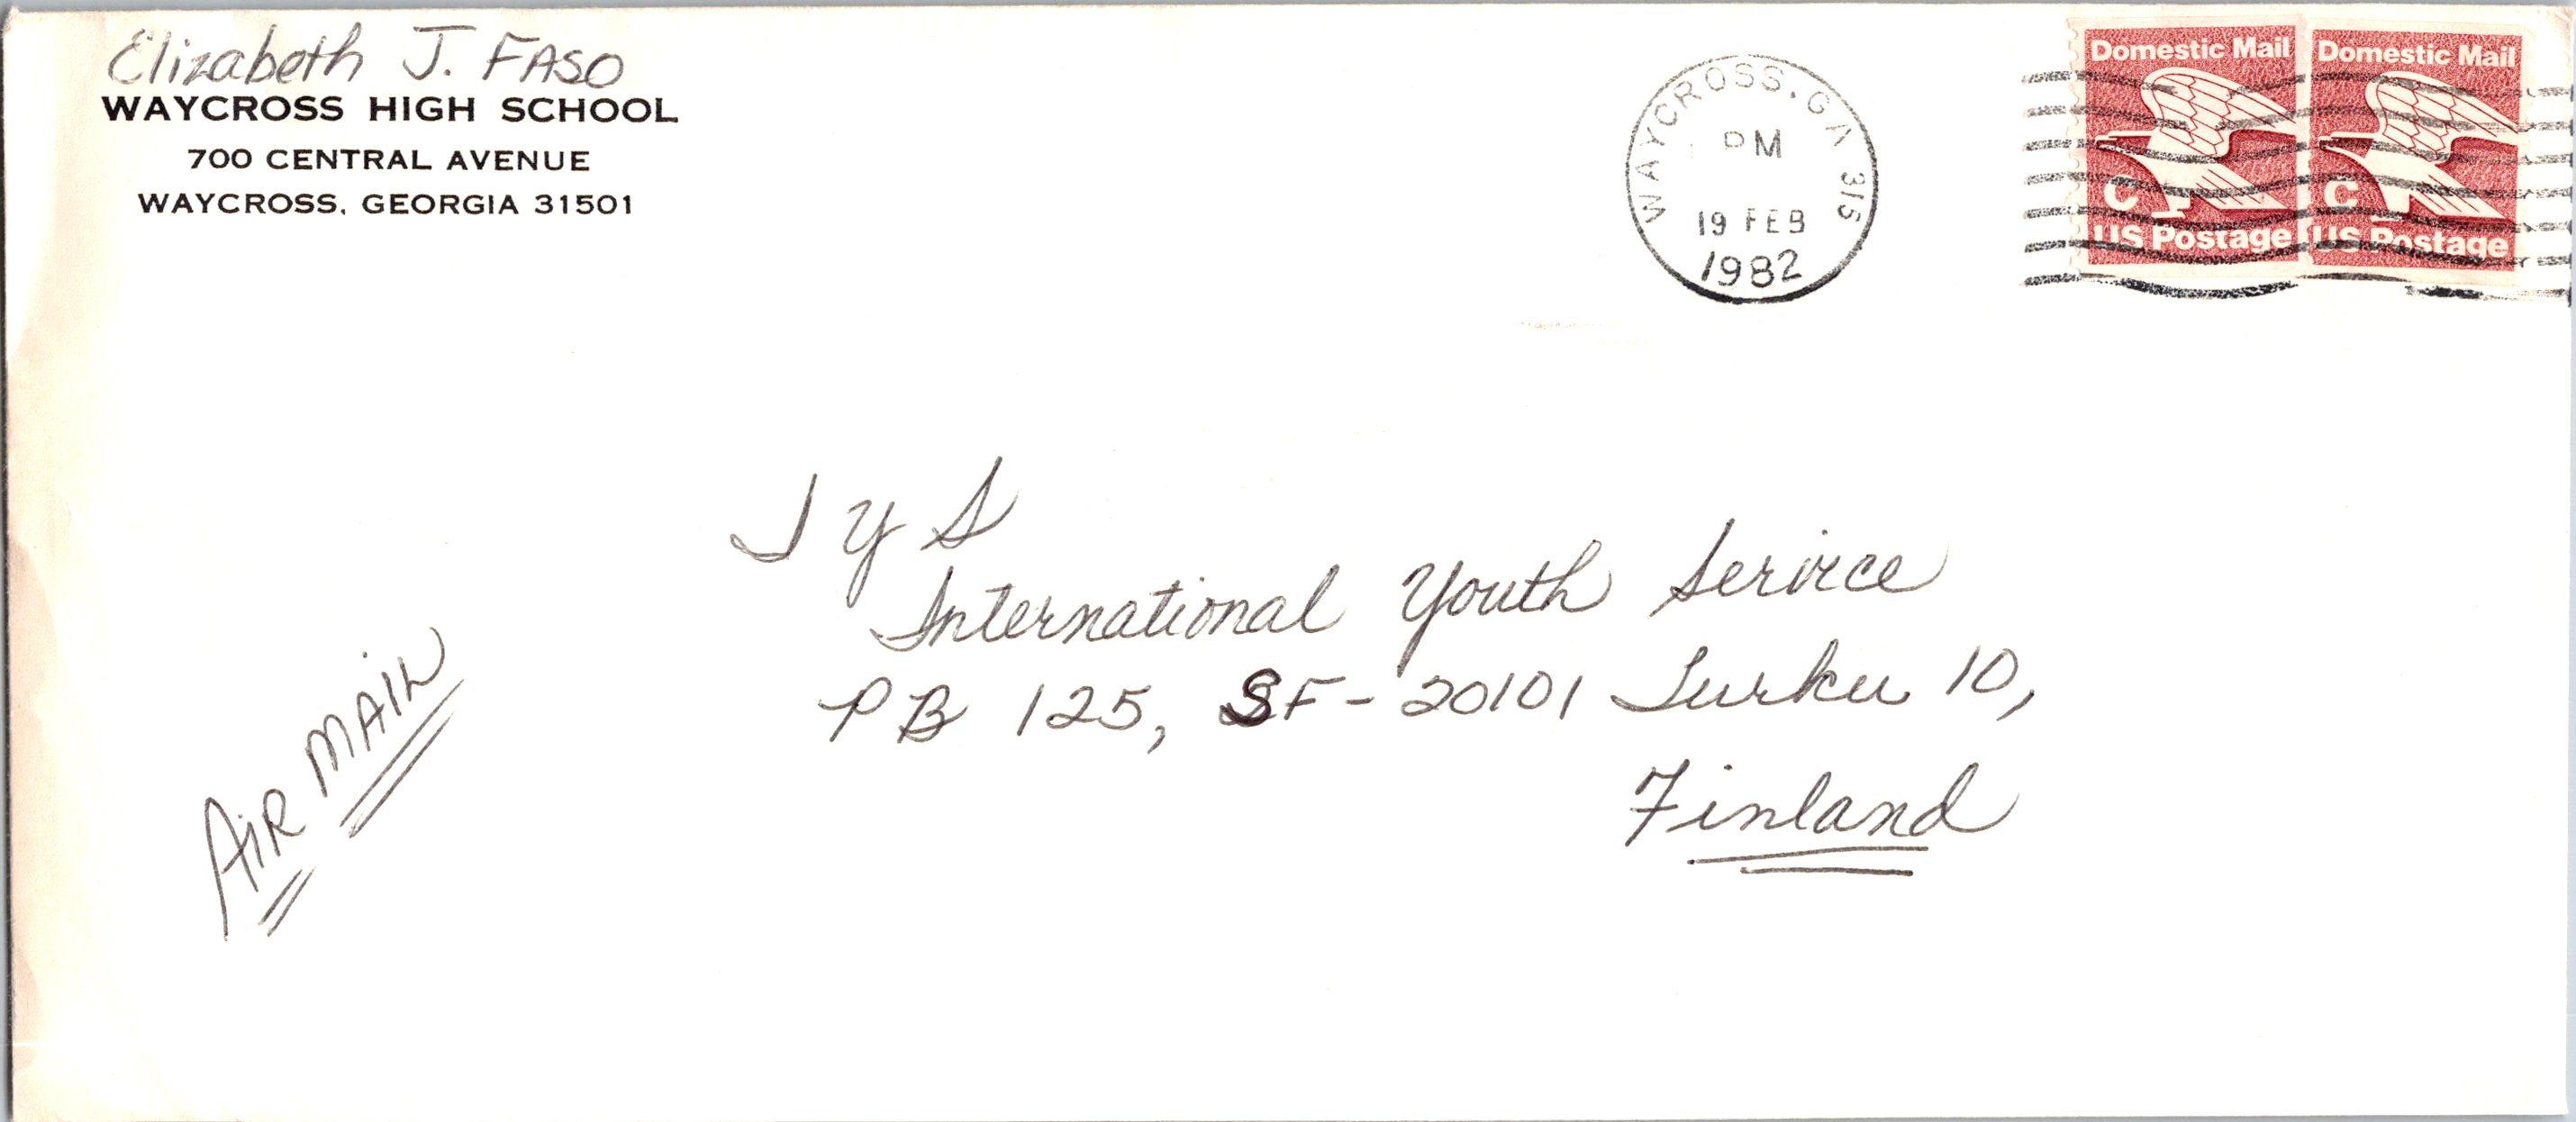 Elizabeth J. FASO
WAYCROSS HIGH SCHOOL
700 CENTRAL AVENUE
WAYCROSS, GEORGIA 31501
WAYCROSS, GA 315
PM
19 FEB
1982
Domestic Mail
C
US Postage
Domestic Mail
C
US Postage
I Y S
International Youth Service
PB 125, SF-20101 Turku 10,
Finland
AIR MAIL